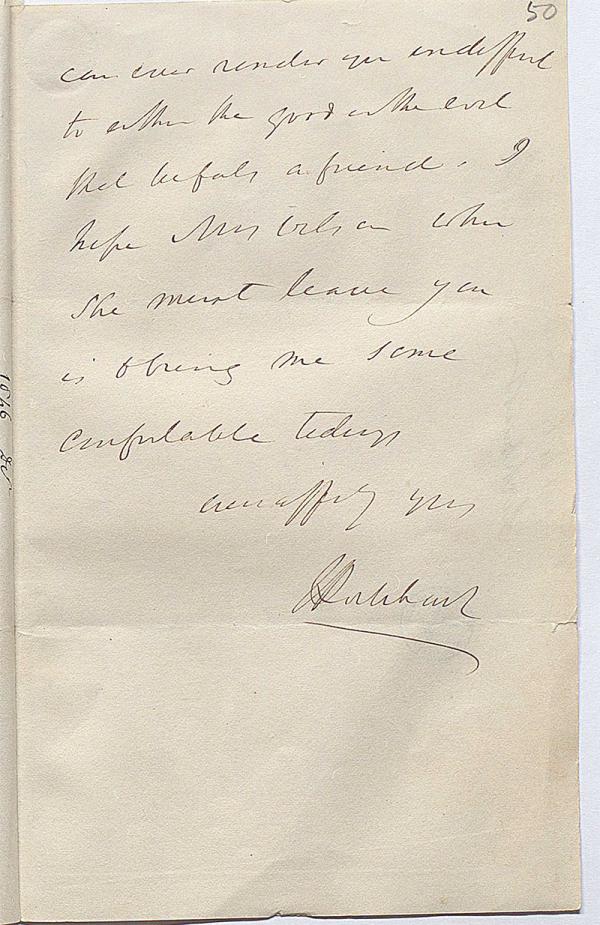 50
can ever render you indifft
to either the good or the evil
that befals a friend. I
hope Mrs Wilson when
she must leave you
is to bring me some
comfortable tidings
ever affly yrs
JGLockhart
1846